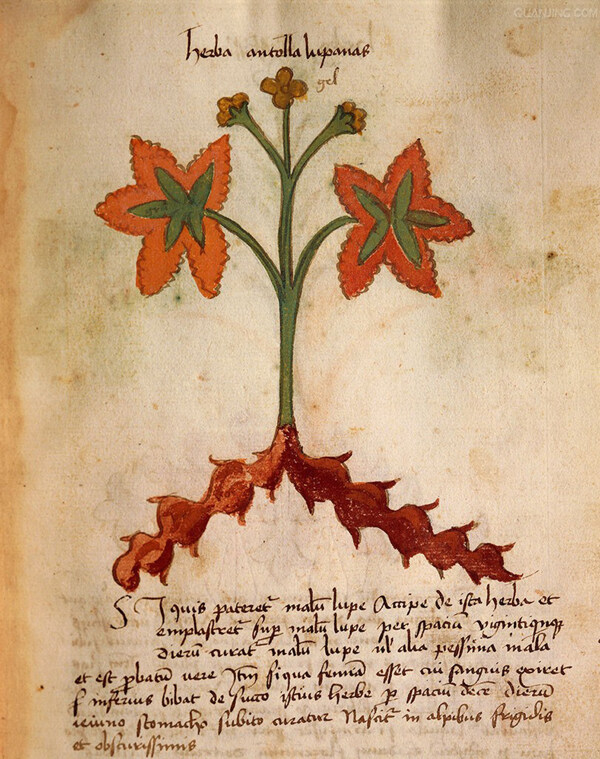 GUANJING.COM
herba antolla lupanas
gel
Siquis pateret malũ lupe Accipe de ista herba et
emplastret sup malũ lupe per spaciũ vigintiquinqꝫ
dierũ curat malũ lupe ul alia pessima mala
et est pbatũ vere Itm si qua femĩa esset cui sanguis exiret
inferius bibat de succo istius herbe p spaciũ dece dierũ
ieiuno stomacho subito curatur Nascit in alpibus frigidis
et obscurissimis